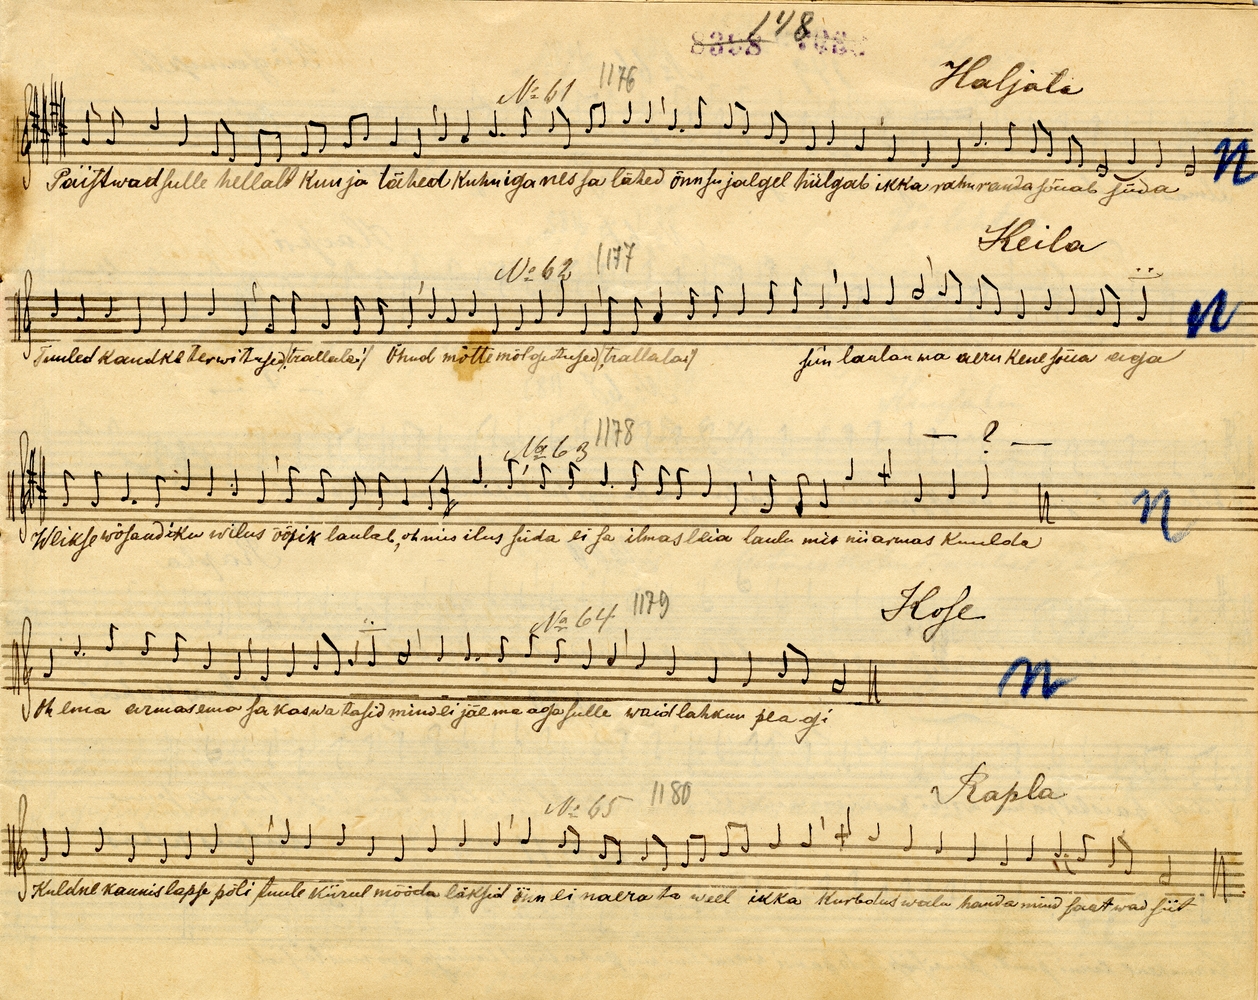 148
8398
Haljala
№ 61 1176
Paistwad sulle hellalt kuu ja tähed kuhu iganes sa lähed õnn su jalgel hiilgab ikka rahu randa sõuab süda
Keila
№ 62 1177
Tuuled kandke terwitused, (trallalai) Õhud mõtte mõlgutused, (trallalai) siin laulan ma aerukene sõua aga
№ 63 1178
— ? —
Weikse wõsandiku wilus ööpik laulab, oh mis ilus süda ei sa ilmas leia laulu mis nii armas kuulda
Kose
№ 64 1179
Oh ema armas ema sa kaswatasid mind ei jäe ma aga sulle waid lahkun pea gi
Rapla
№ 65 1180
Kuldne kaunis lapse põli tuule kiirul mööda läksid õnn ei naerata weel ikka kurbdus walu hauda mind saatwad siit